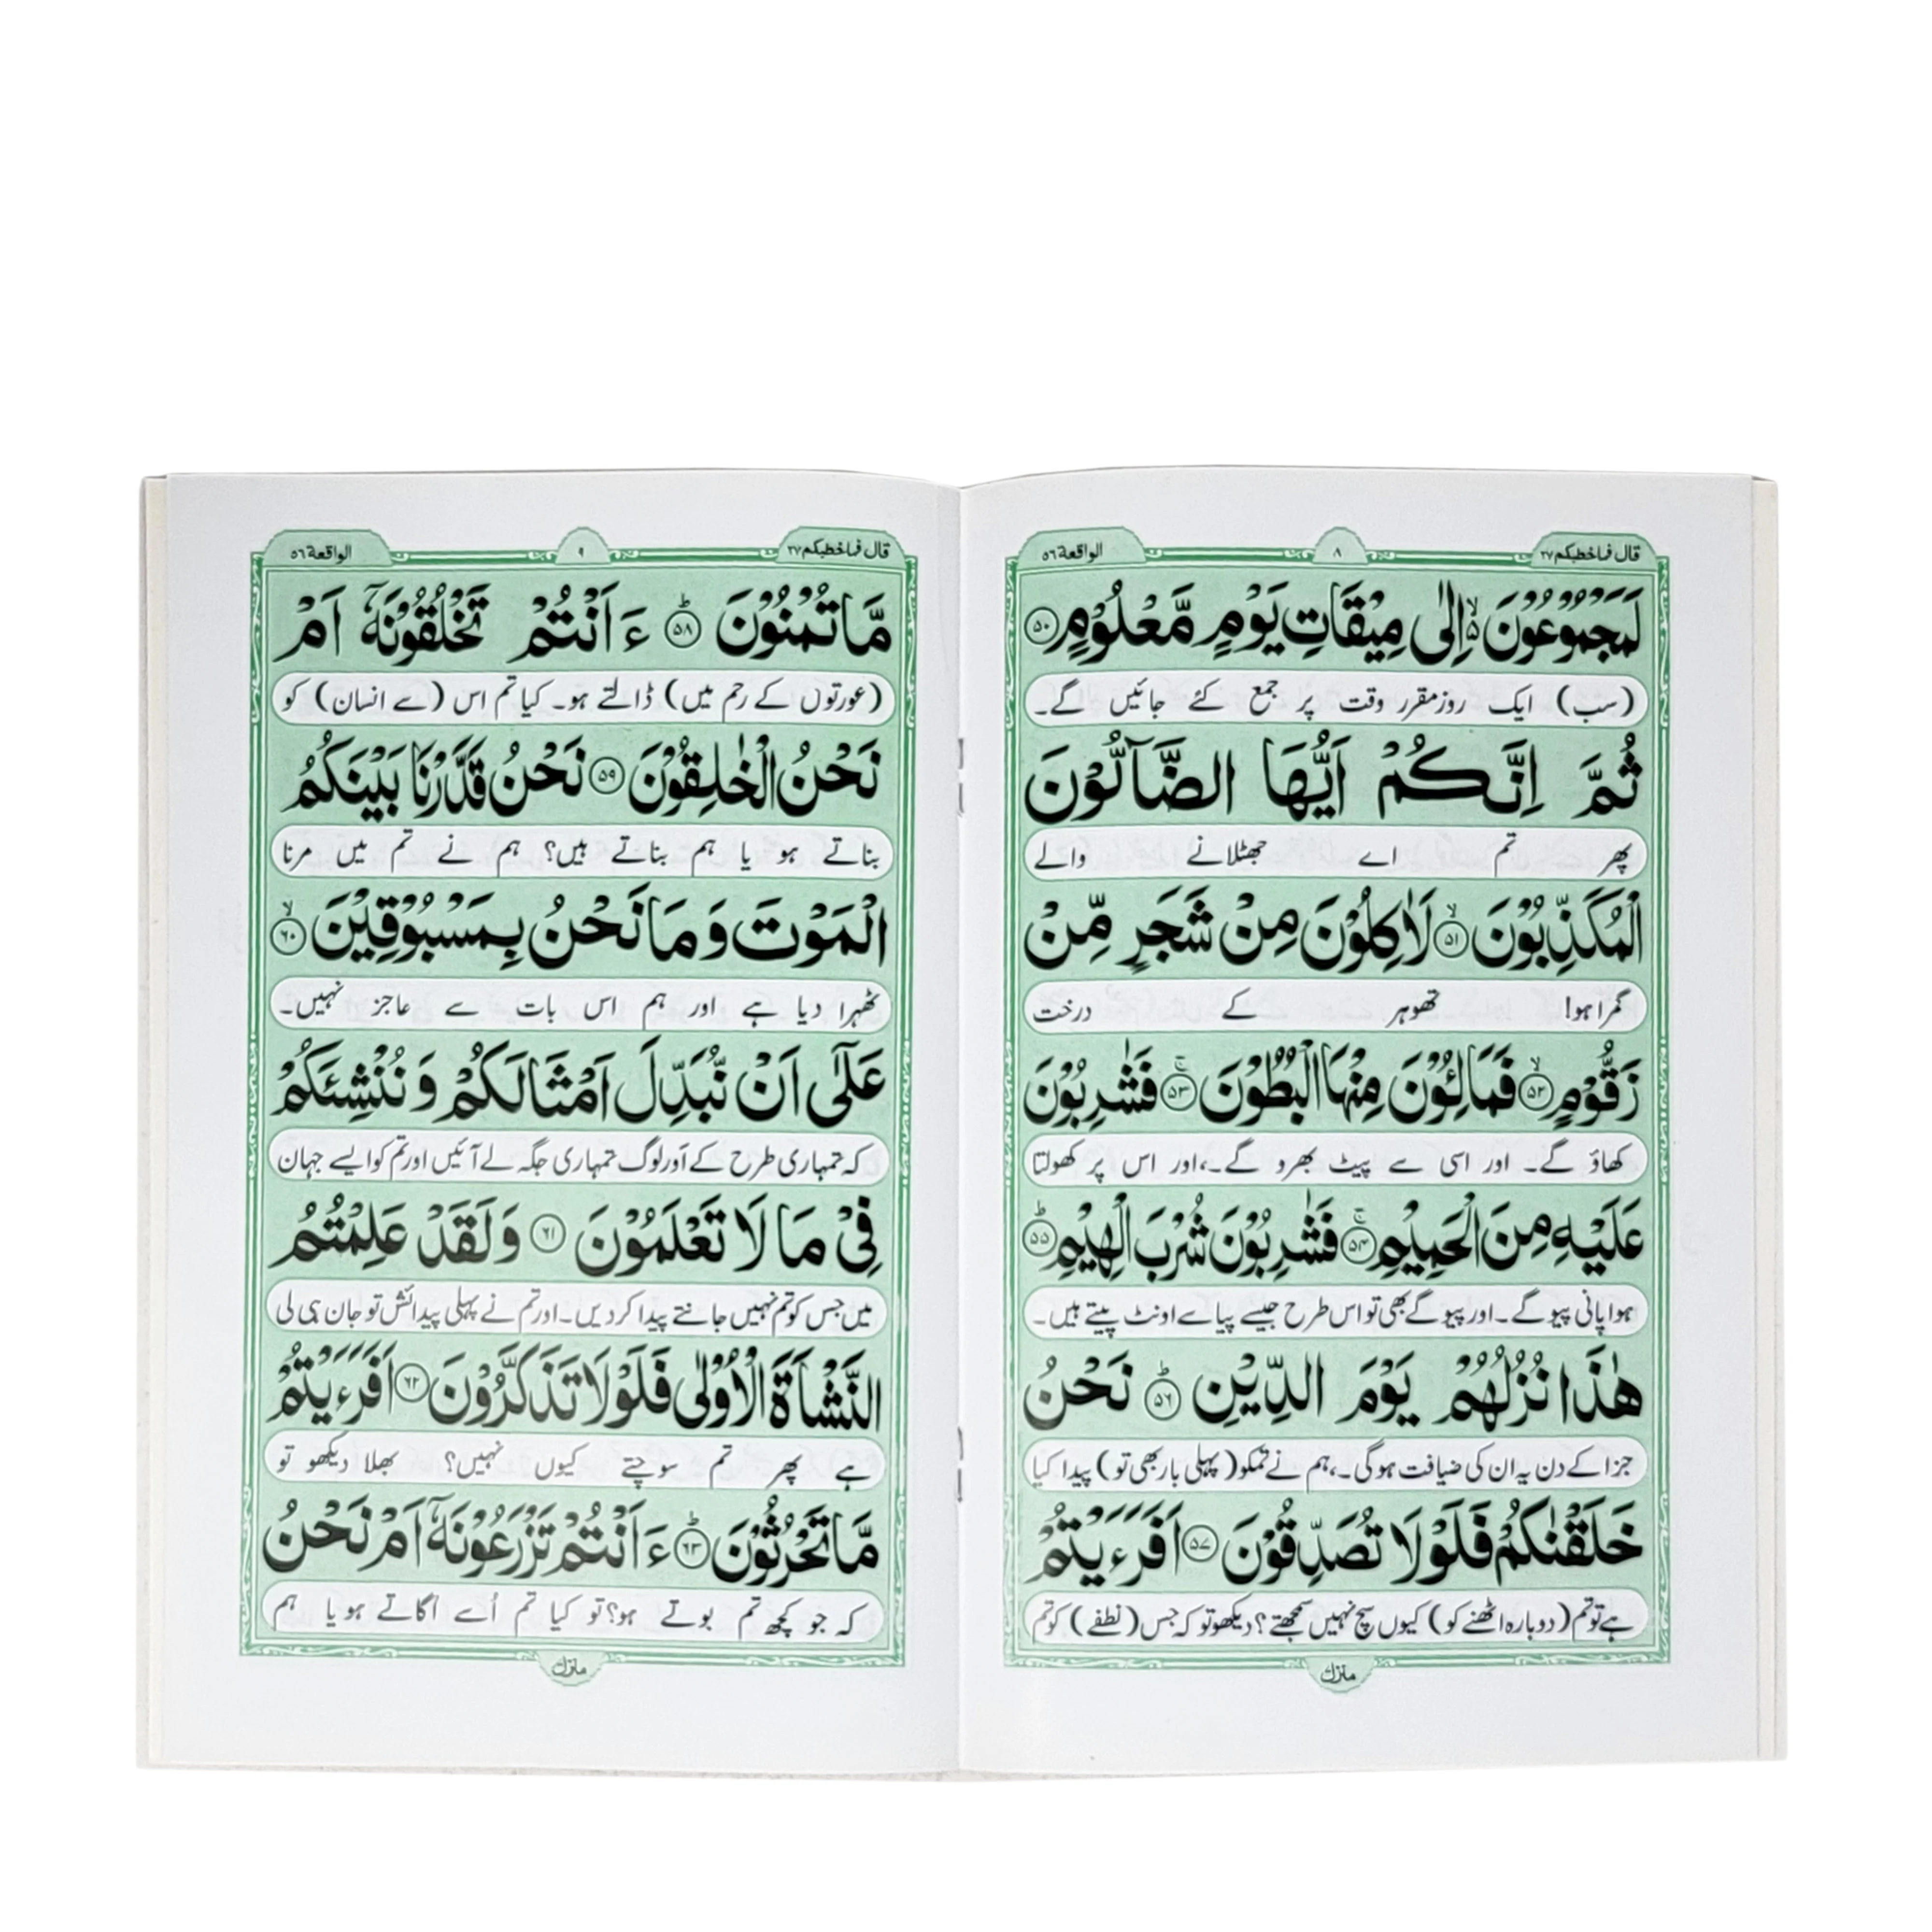 قال فماخطبكم ٢٧
٨
الواقعة ٥٦
لَمَجْمُوْعُوْنَ ۙ اِلٰى مِيْقَاتِ يَوْمٍ مَّعْلُوْمٍ ۝٥٠
(سب) ایک روز مقرر وقت پر جمع کئے جائیں گے۔
ثُمَّ اِنَّكُمْ اَيُّهَا الضَّآلُّوْنَ
پھر تم اے جھٹلانے والے
الْمُكَذِّبُوْنَ ۙ۝٥١ لَاٰكِلُوْنَ مِنْ شَجَرٍ مِّنْ
گمراہو! تھوہر کے درخت
زَقُّوْمٍ ۙ۝٥٢ فَمَالِـُٔوْنَ مِنْهَا الْبُطُوْنَ ۚ۝٥٣ فَشٰرِبُوْنَ
کھاؤ گے۔ اور اسی سے پیٹ بھرو گے۔، اور اس پر کھولتا
عَلَيْهِ مِنَ الْحَمِيْمِ ۚ۝٥٤ فَشٰرِبُوْنَ شُرْبَ الْهِيْمِ ؕ۝٥٥
ہوا پانی پیو گے۔ اور پیو گے بھی تو اس طرح جیسے پیاسے اونٹ پیتے ہیں۔
هٰذَا نُزُلُهُمْ يَوْمَ الدِّيْنِ ؕ۝٥٦ نَحْنُ
جزا کے دن یہ ان کی ضیافت ہوگی۔، ہم نے تمکو (پہلی بار بھی تو) پیدا کیا
خَلَقْنٰكُمْ فَلَوْلَا تُصَدِّقُوْنَ ۝٥٧ اَفَرَءَيْتُمْ
ہے تو تم (دوبارہ اٹھنے کو) کیوں سچ نہیں سمجھتے؟ دیکھو تو کہ جس (نطفے) کو تم
منزل
قال فماخطبكم ٢٧
٩
الواقعة ٥٦
مَّا تُمْنُوْنَ ؕ۝٥٨ ءَاَنْتُمْ تَخْلُقُوْنَهٗۤ اَمْ
(عورتوں کے رحم میں) ڈالتے ہو۔ کیا تم اس (سے انسان) کو
نَحْنُ الْخٰلِقُوْنَ ۝٥٩ نَحْنُ قَدَّرْنَا بَيْنَكُمُ
بناتے ہو یا ہم بناتے ہیں؟ ہم نے تم میں مرنا
الْمَوْتَ وَمَا نَحْنُ بِمَسْبُوْقِيْنَ ۙ۝٦٠
ٹھہرا دیا ہے اور ہم اس بات سے عاجز نہیں۔
عَلٰۤى اَنْ نُّبَدِّلَ اَمْثَالَكُمْ وَنُنْشِئَكُمْ
کہ تمہاری طرح کے اور لوگ تمہاری جگہ لے آئیں اور تم کو ایسے جہان
فِيْ مَا لَا تَعْلَمُوْنَ ۝٦١ وَلَقَدْ عَلِمْتُمُ
میں جس کو تم نہیں جانتے پیدا کر دیں۔ اور تم نے پہلی پیدائش تو جان ہی لی
النَّشْاَةَ الْاُوْلٰى فَلَوْلَا تَذَكَّرُوْنَ ۝٦٢ اَفَرَءَيْتُمْ
ہے پھر تم سوچتے کیوں نہیں؟ بھلا دیکھو تو
مَّا تَحْرُثُوْنَ ؕ۝٦٣ ءَاَنْتُمْ تَزْرَعُوْنَهٗۤ اَمْ نَحْنُ
کہ جو کچھ تم بوتے ہو؟ تو کیا تم اُسے اگاتے ہو یا ہم
منزل